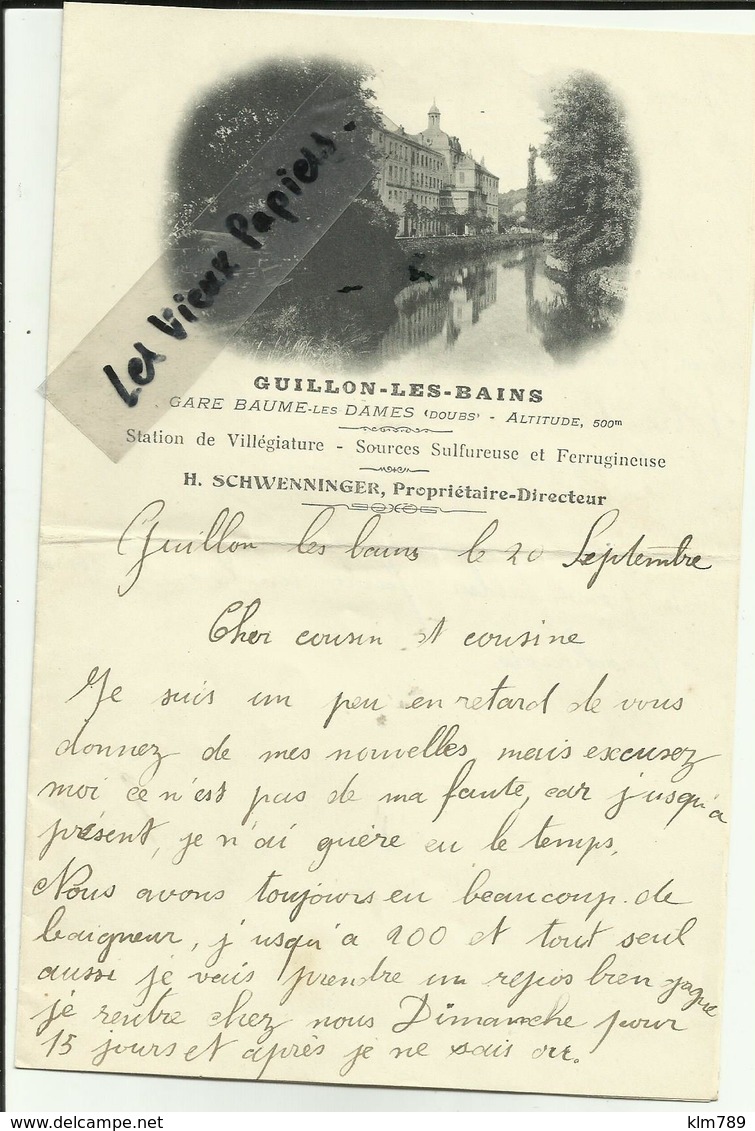 Les Vieux Papiers -
GUILLON-LES-BAINS
GARE BAUME-LES DAMES (DOUBS) - ALTITUDE, 500m
Station de Villégiature - Sources Sulfureuse et Ferrugineuse
H. SCHWENNINGER, Propriétaire-Directeur
Guillon les bains le 20 Septembre
Cher cousin et cousine
Je suis un peu en retard de vous
donnez de mes nouvelles, mais excusez
moi ce n'est pas de ma faute, car jusqu'a
présent, je n'ai guère eu le temps,
Nous avons toujours eu beaucoup de
baigneur, jusqu'a 200 et tout seul
aussi je vais prendre un repos bien gagné
je rentre chez nous Dimanche pour
15 jours et après je ne sais ou.
www.delcampe.net
klm789